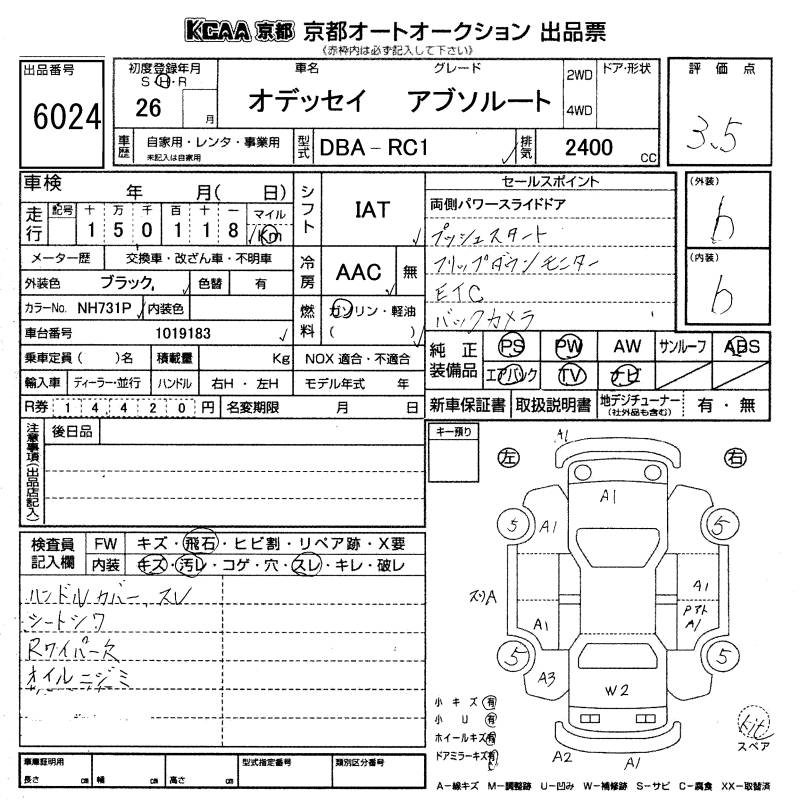 KCAA 京都 京都オートオークション 出品票
《赤枠内は必ず記入して下さい》
出品番号
6024
初度登録年月
S・H・R
26 月
車名 グレード
オデッセイ アブソルート
2WD
4WD
ドア・形状
評価点
3.5
車歴
自家用・レンタ・事業用
未記入は自家用
型式
DBA－RC1
排気
2400 cc
車検 年 月( 日)
走行
記号 十 万 千 百 十 一 マイル
1 5 0 1 1 8 Km
メーター歴 交換車・改ざん車・不明車
外装色 ブラック 色替 有
カラーNo. NH731P 内装色
車台番号 1019183
乗車定員( )名 積載量 Kg
輸入車 ディーラー・並行 ハンドル 右H・左H
R券 1 4 4 2 0 円 名変期限 月 日
シフト
IAT
冷房
AAC 無
燃料
ガソリン・軽油
( )
NOX 適合・不適合
モデル年式 年
セールスポイント
両側パワースライドドア
プッシュスタート
フリップダウンモニター
ETC
バックカメラ
(外装)
b
(内装)
b
純正装備品
PS PW AW サンルーフ ABS
エアバック TV ナビ
新車保証書 取扱説明書 地デジチューナー
(社外品も含む)
有・無
注意事項(出品店記入)
後日品
検査員記入欄
FW キズ・飛石・ヒビ割・リペア跡・X要
内装 キズ・汚レ・コゲ・穴・スレ・キレ・破レ
ハンドルカバー、スレ
シートシワ
Rワイパー欠
オイルニジミ
キー預り
左 右
A1
A1
5 A1 5
スリA A1
A1 Pアト A1
5 5
A3
W2
A2 A1
小キズ 有
小U 有
ホイールキズ 有
ドアミラーキズ 有
kit
スペア
A－線キズ M－調整跡 U－凹み W－補修跡 S－サビ C－腐食 XX－取替済
車庫証明用
長さ cm 幅 cm 高さ cm
型式指定番号
類別区分番号